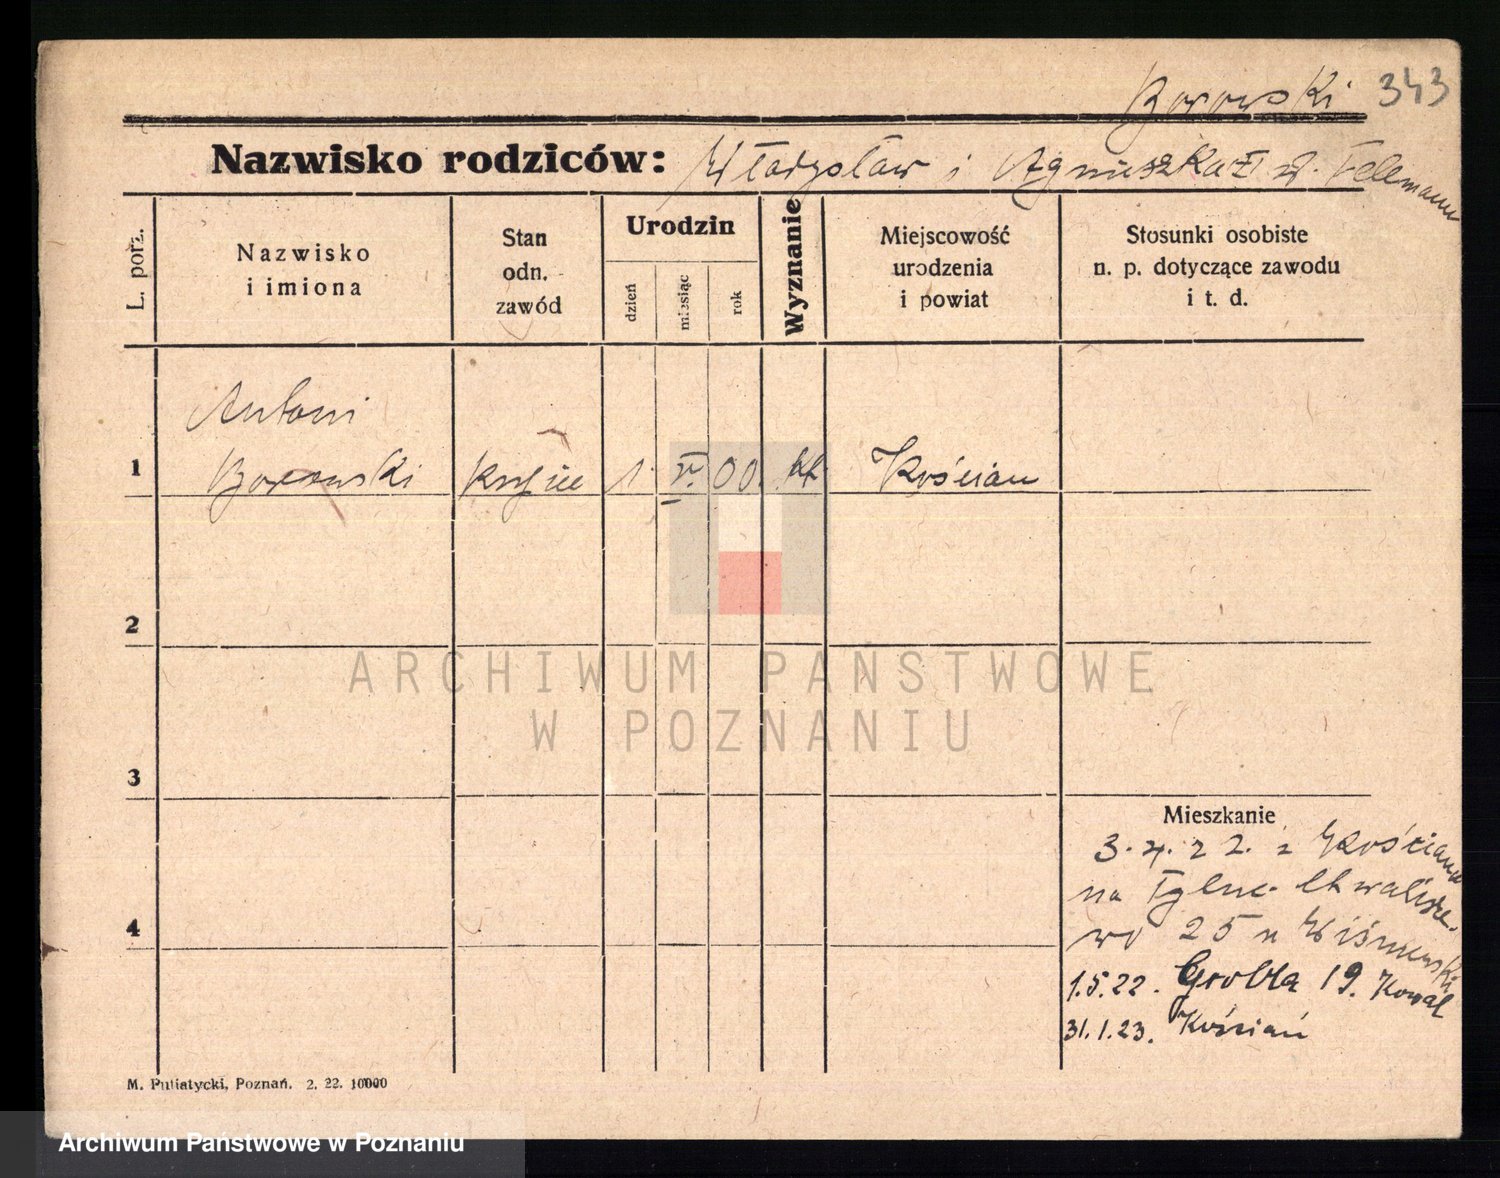 Borowski 343
Nazwisko rodziców: Władysław i Agnieszka z d.
L. porz.
Nazwisko
i imiona
Stan
odn.
zawód
Urodzin
dzień
miesiąc
rok
Wyznanie
Miejscowość
urodzenia
i powiat
Stosunki osobiste
n. p. dotyczące zawodu
i t. d.
Antoni
1 Borowski 1. V. 00. kt. Kościan
2
3
4
Mieszkanie
3. 4. 22. z Kościana
na Tylne Chwalisze-
wo 25 u Wiśniewski
1.5.22. Grobla 19. Kowal
31.1.23. Kościan
M. Putiatycki, Poznań. 2. 22. 10000
ARCHIWUM PAŃSTWOWE
W POZNANIU
Archiwum Państwowe w Poznaniu